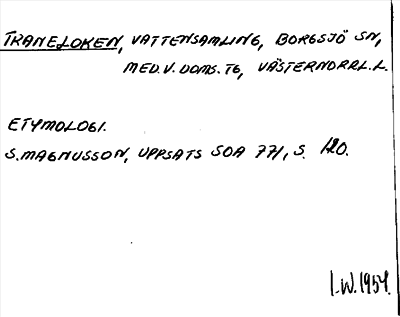 TRANELOKEN, VATTENSAMLING, BORGSJÖ SN,
MED.V. DOMS. TG, VÄSTERNORRL.L.
ETYMOLOGI.
S. MAGNUSSON, UPPSATS SOA 771, S. 120.
I.W. 1954.